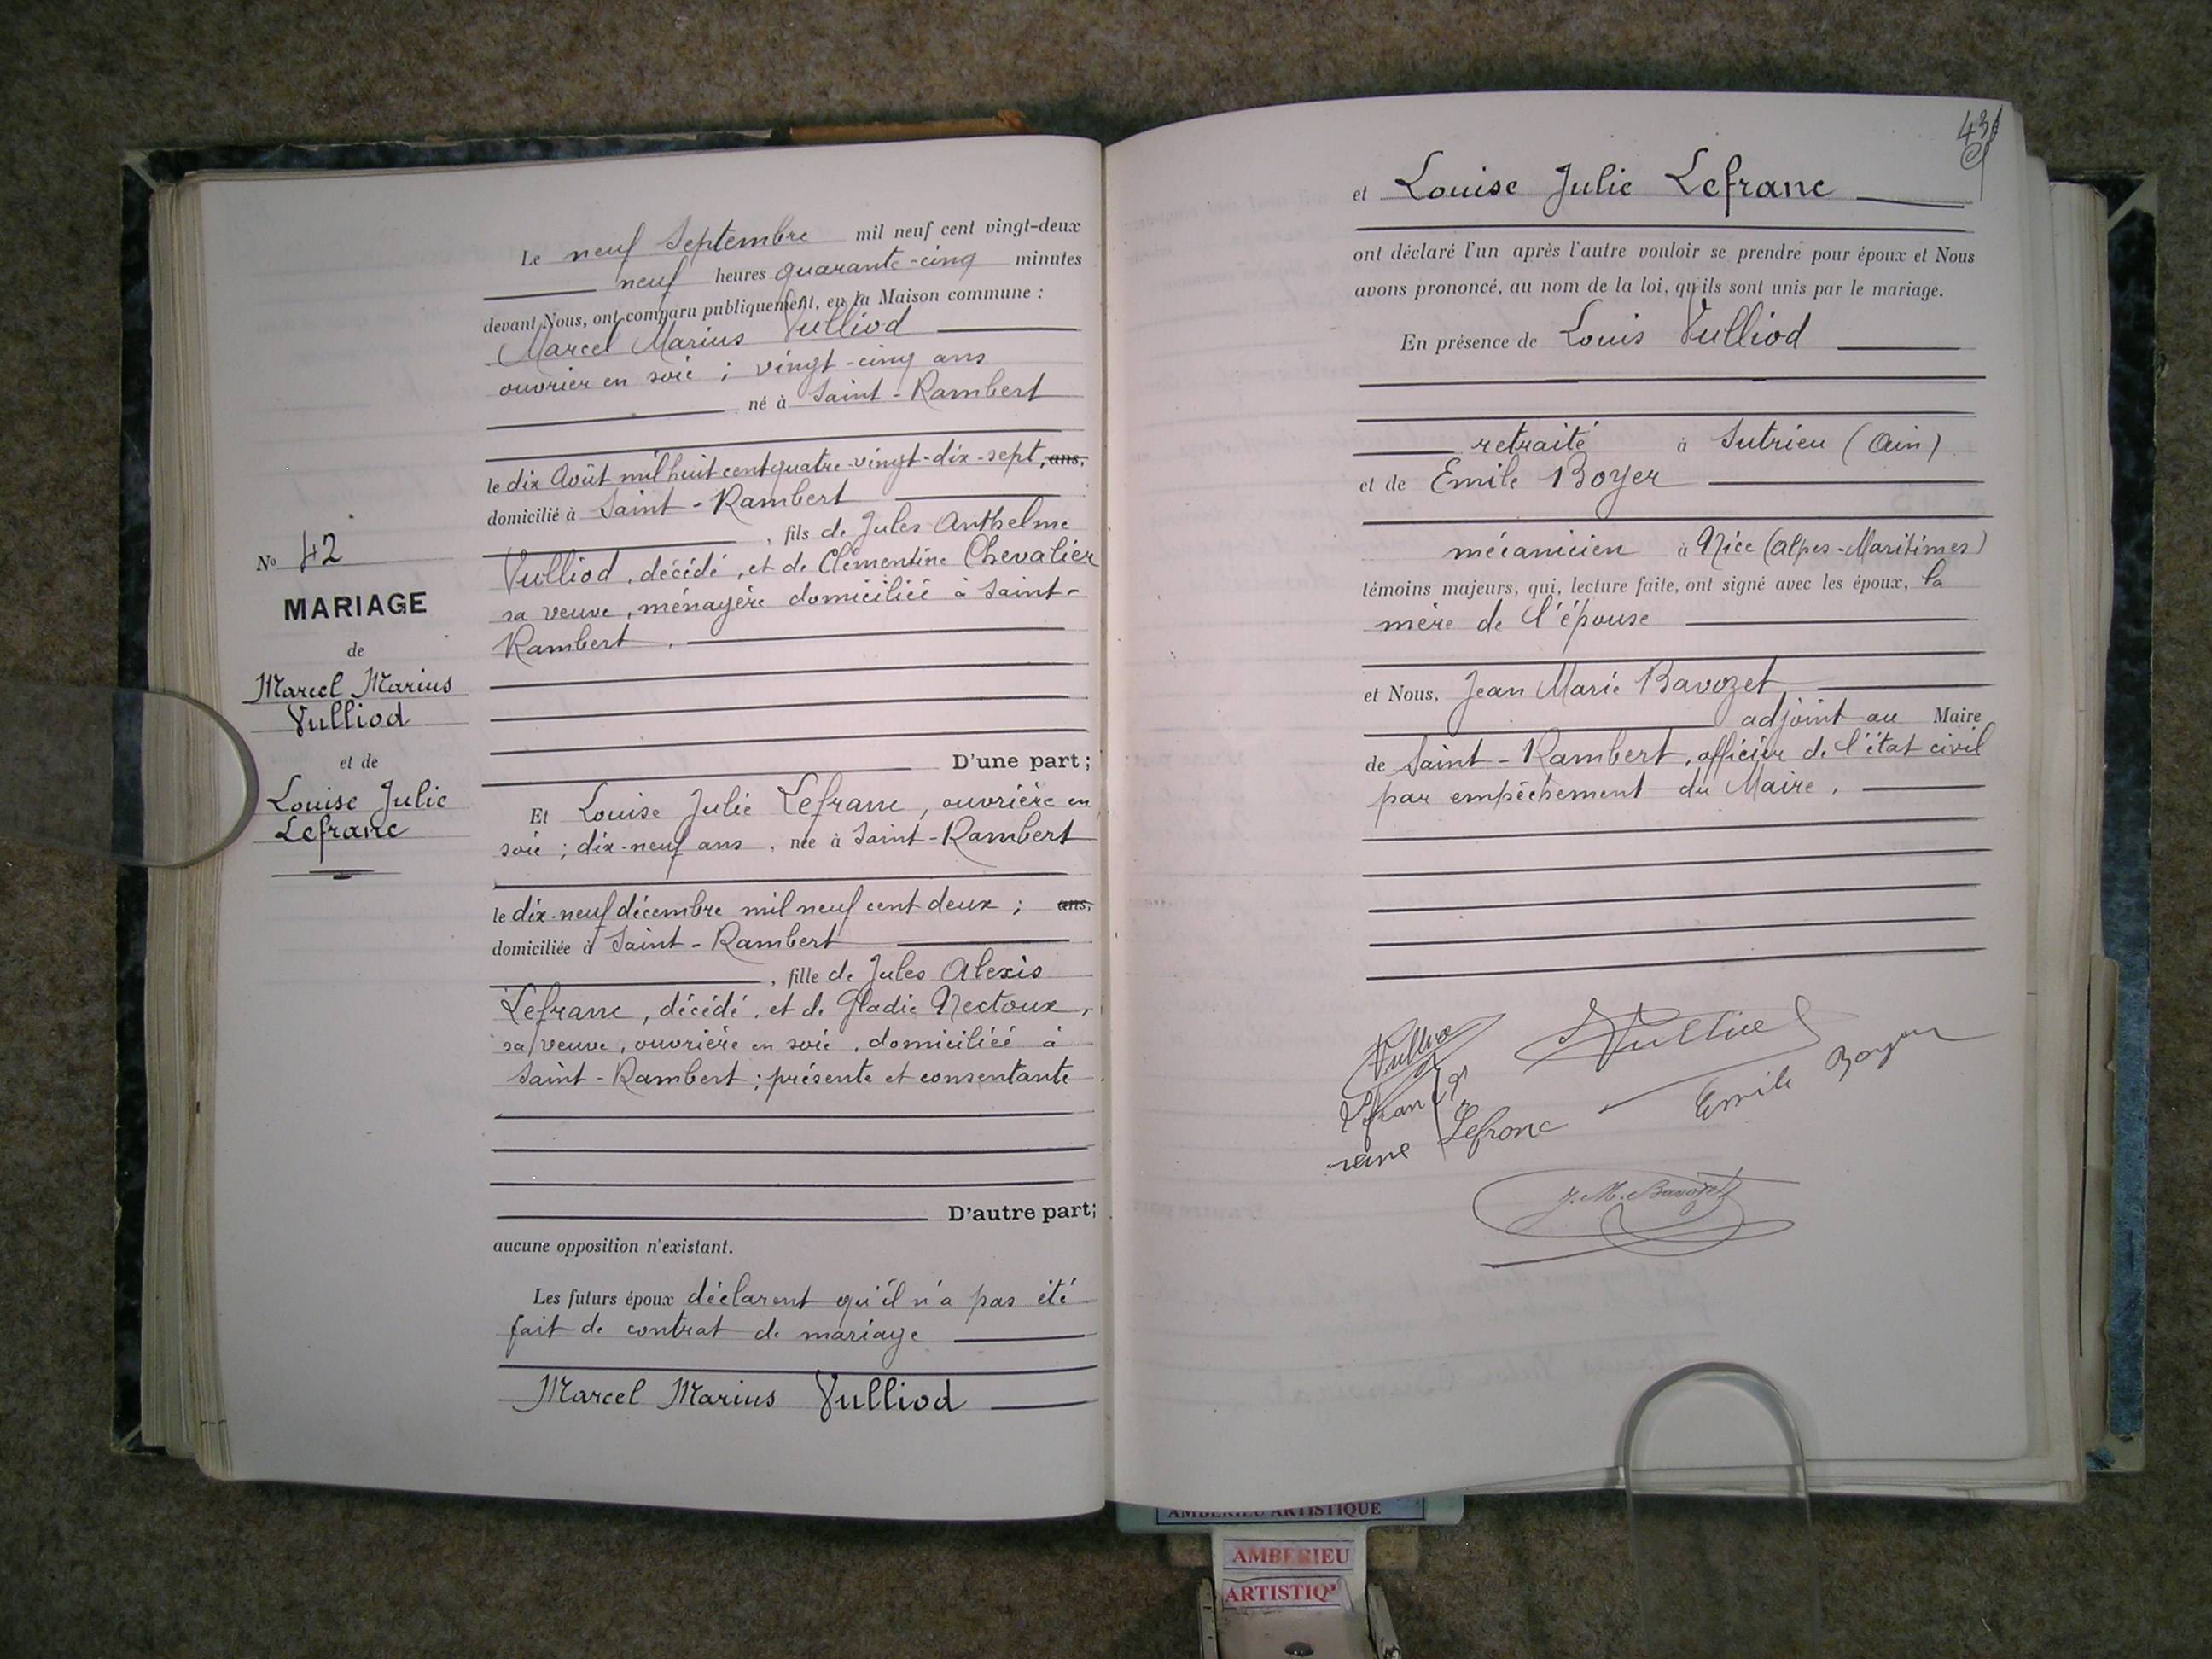 Le neuf Septembre mil neuf cent vingt-deux
neuf heures quarante-cinq minutes
devant Nous, ont comparu publiquement, en la Maison commune :
Marcel Marius Vulliod
ouvrier en soie ; vingt-cinq ans
né à Saint-Rambert
le dix Août mil huit cent quatre-vingt-dix-sept, ans,
domicilié à Saint-Rambert
, fils de Jules Anthelme
Vulliod, décédé, et de Clémentine Chevalier
sa veuve, ménagère domiciliée à Saint-
Rambert.
D'une part ;
No 42
MARIAGE
de
Marcel Marius
Vulliod
et de
Louise Julie
Lefranc
Et Louise Julie Lefranc, ouvrière en
soie ; dix-neuf ans, née à Saint-Rambert
le dix-neuf décembre mil neuf cent deux ; ans,
domiciliée à Saint-Rambert
, fille de Jules Alexis
Lefranc, décédé, et de Gladie Nectoux,
sa veuve, ouvrière en soie, domiciliée à
Saint-Rambert ; présente et consentante
D'autre part;
aucune opposition n'existant.
Les futurs époux déclarent qu'il n'a pas été
fait de contrat de mariage
Marcel Marius Vulliod
431
et Louise Julie Lefranc
ont déclaré l'un après l'autre vouloir se prendre pour époux et Nous
avons prononcé, au nom de la loi, qu'ils sont unis par le mariage.
En présence de Louis Vulliod
retraité à Sutrieu (Ain)
et de Emile Boyer
mécanicien à Nice (Alpes-Maritimes)
témoins majeurs, qui, lecture faite, ont signé avec les époux, la
mère de l'épouse
et Nous, Jean Marie Bavozet
adjoint au Maire
de Saint-Rambert, officier de l'état civil
par empêchement du Maire.
Vulliod
Vulliod
Lefranc
Emile Boyer
Lefranc
J. M. Bavozet
AMBERIEU ARTISTIQUE
AMBERIEU
ARTISTIQ